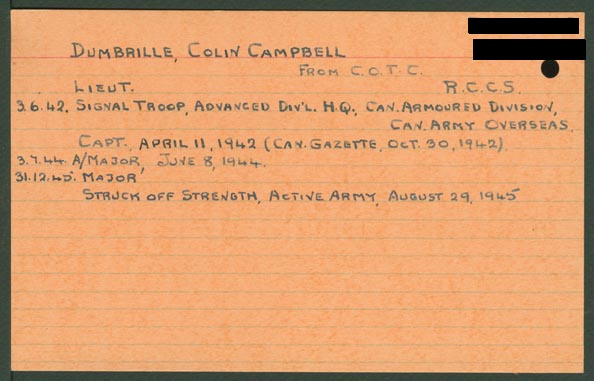 DUMBRILLE, COLIN CAMPBELL
FROM C.O.T.C.
LIEUT. R.C.C.S.
3.6.42. SIGNAL TROOP, ADVANCED DIV'L. H.Q., CAN. ARMOURED DIVISION,
CAN. ARMY OVERSEAS.
CAPT., APRIL 11, 1942 (CAN. GAZETTE, OCT. 30, 1942).
3.7.44. A/MAJOR, JUNE 8, 1944.
31.12.45. MAJOR,
STRUCK OFF STRENGTH, ACTIVE ARMY, AUGUST 29, 1945